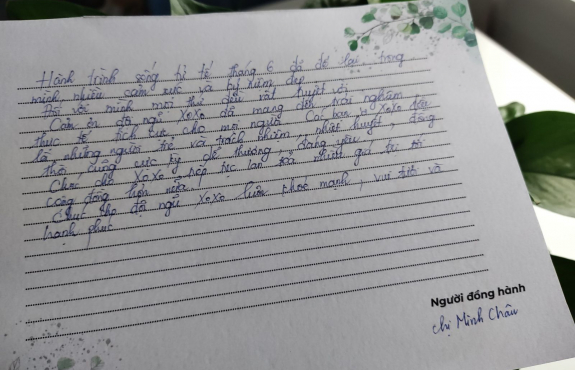 Hành trình sống tử tế tháng 6 đã để lại trong
mình nhiều cảm xúc và kỷ niệm đẹp
Đối với mình mọi thứ đều rất tuyệt vời
Cảm ơn đội ngũ XoXo đã mang đến trải nghiệm
thực tế, tích cực cho mọi người. Các bạn ở XoXo đều
là những người trẻ và trách nhiệm, nhiệt huyết, đồng
thời cũng cực kỳ dễ thương, đáng yêu.
Chúc cho XoXo tiếp tục lan toả nhiều giá trị tới
cộng đồng hơn nữa.
Chúc cho đội ngũ XoXo luôn khoẻ mạnh, vui tươi và
hạnh phúc
Người đồng hành
chị Minh Châu